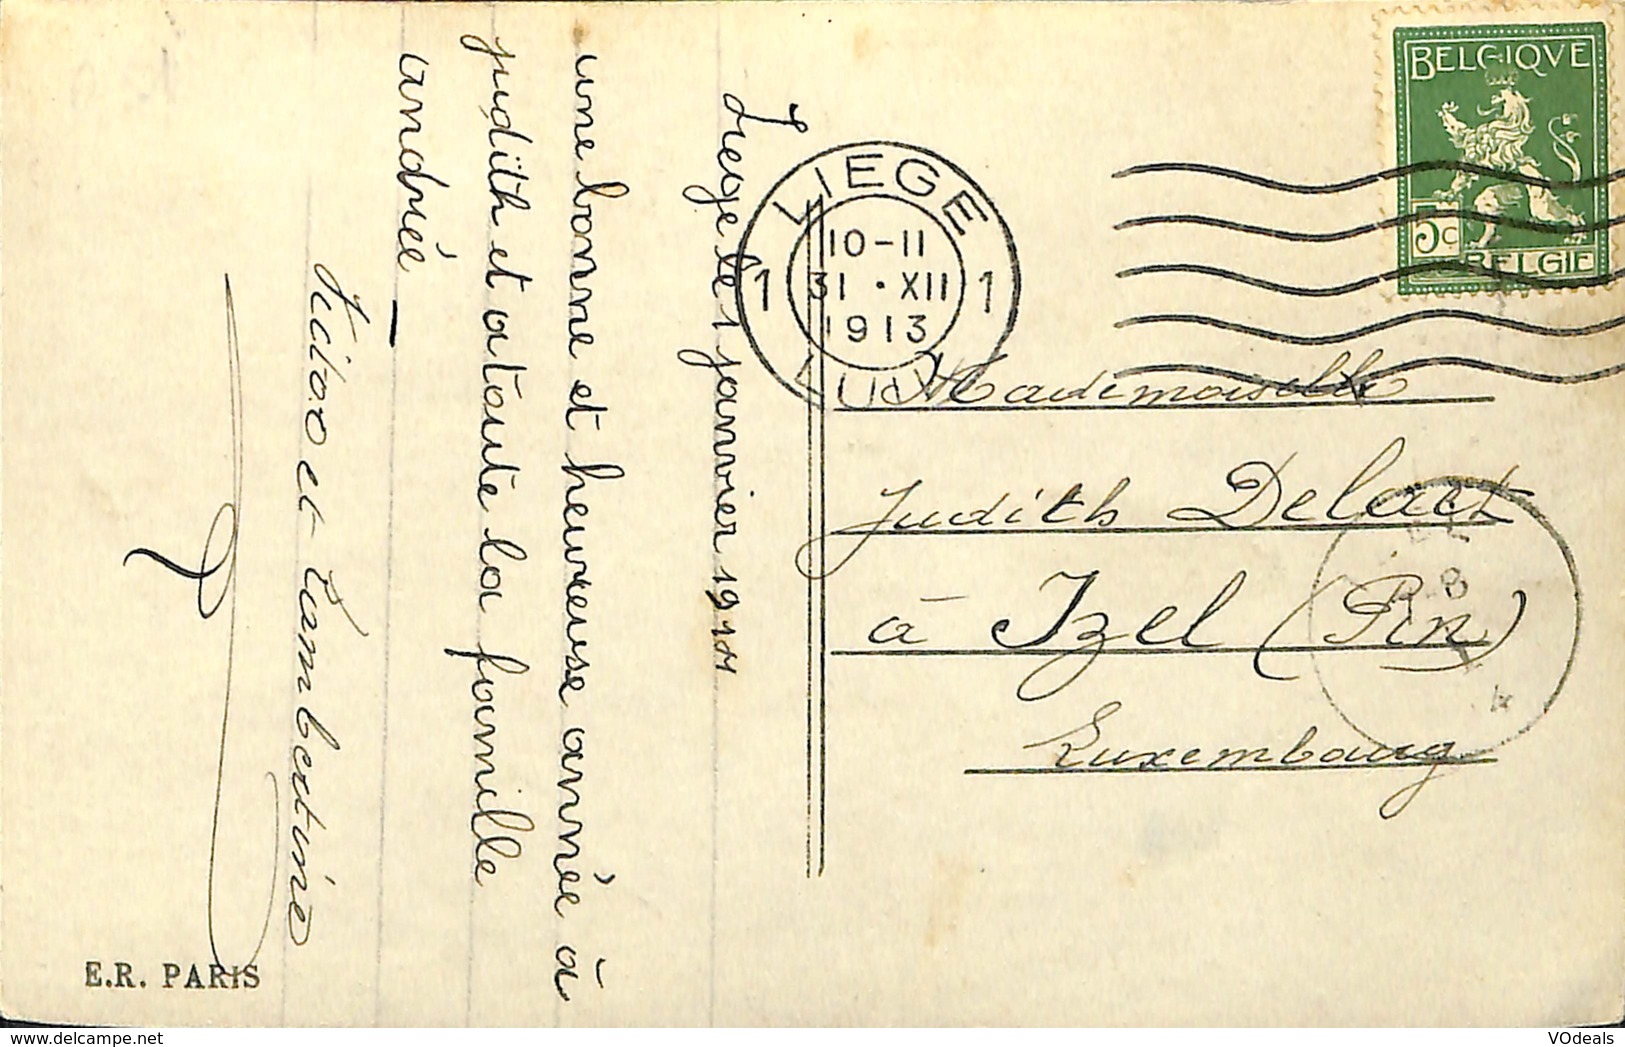 Liege le 1 janvier 1914
une bonne et heureuse année à
judith et a toute la famille
andrée
Victor et Lambertine
E.R. PARIS
LIEGE
1 10-11 1
31 · XII
1913
LUIK
BELGIQVE
5c
BELGIE
Mademoiselle
Judith Delaet
à Izel (Pin)
Luxembourg
VOdeals